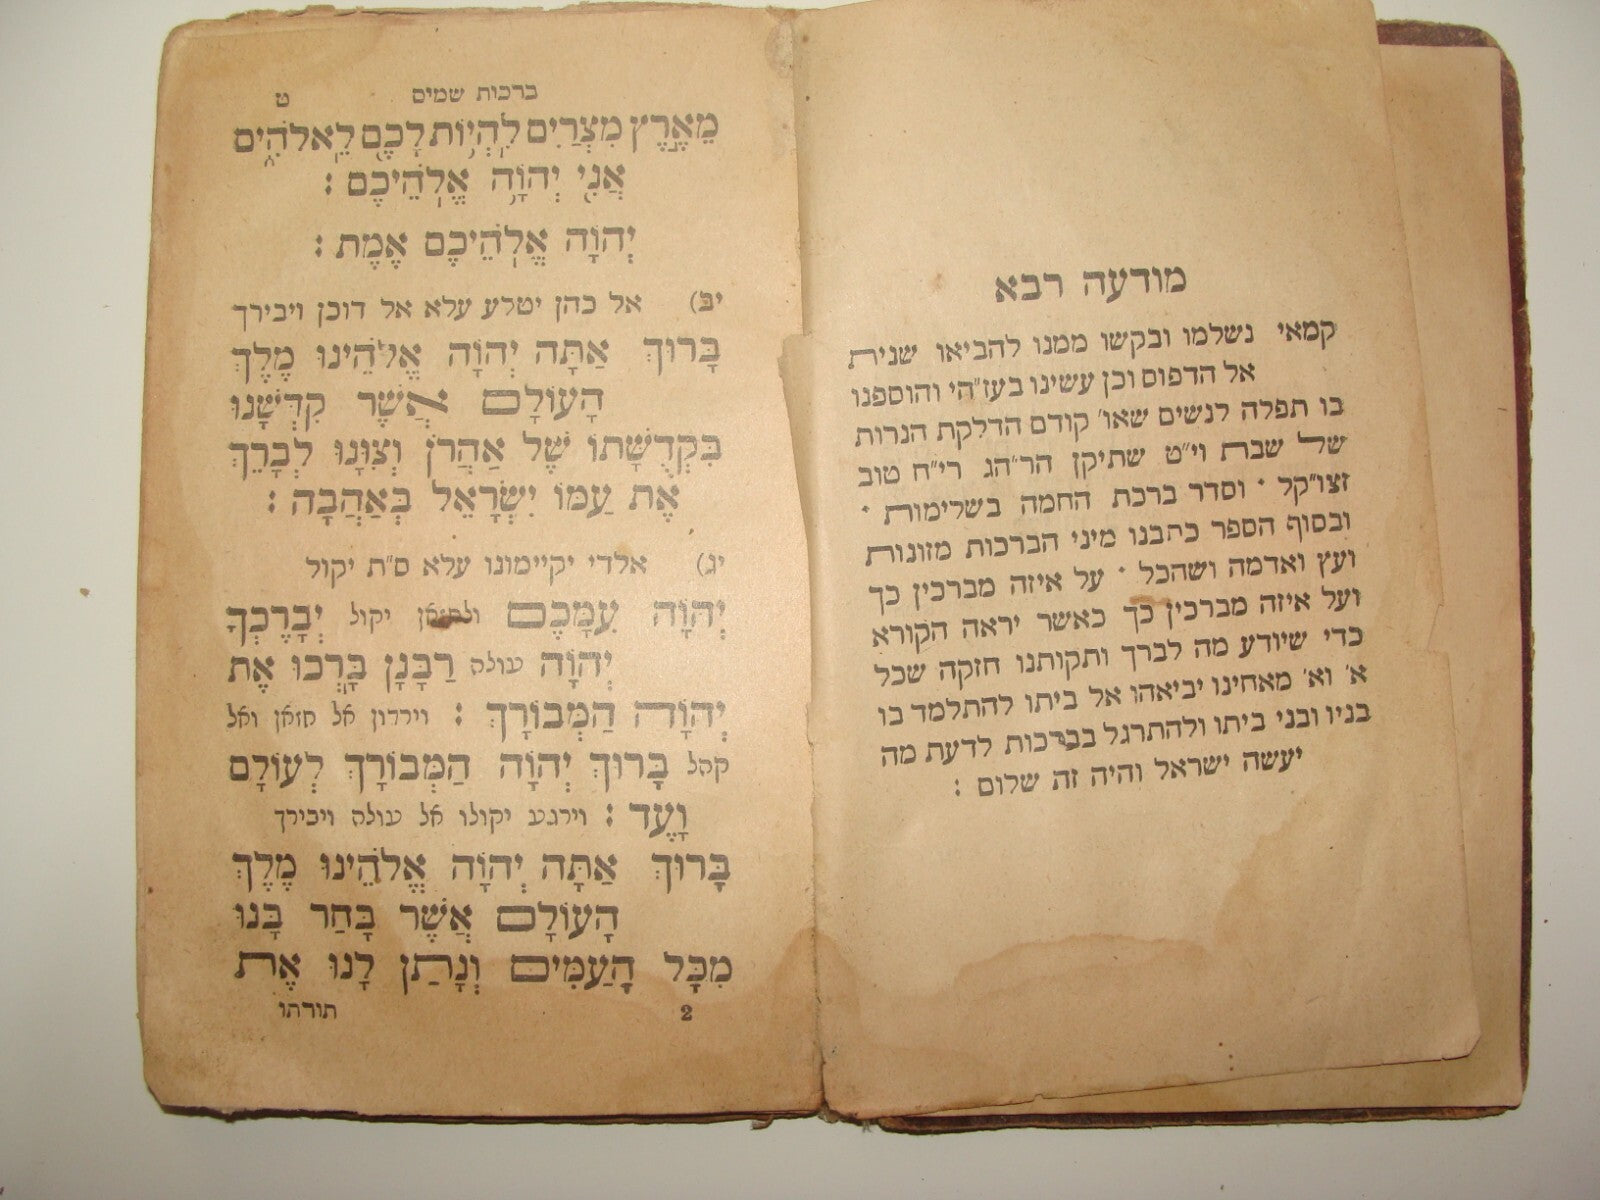 מודעה רבא
קמאי נשלמו ובקשו ממנו להביאו שנית
אל הדפוס וכן עשינו בעז״הי והוספנו
בו תפלה לנשים שאו׳ קודם הדלקת הנרות
של שבת וי״ט שתיקן הר״הג רי״ח טוב
זצו״קל ׃ וסדר ברכת החמה בשלימות ׃
ובסוף הספר כתבנו מיני הברכות מזונות
ועץ ואדמה ושהכל ׃ על איזה מברכין כך
ועל איזה מברכין כך כאשר יראה הקורא
כדי שיודע מה לברך ותקותנו חזקה שכל
א׳ וא׳ מאחינו יביאהו אל ביתו להתלמד בו
בניו ובני ביתו ולהתרגל בברכות לדעת מה
יעשה ישראל והיה זה שלום :
ברכות שמים ט
מֵאֶרֶץ מִצְרַיִם לִהְיוֹת לָכֶם לֵאלֹהִים
אֲנִי יְהוָה אֱלֹהֵיכֶם :
יְהוָה אֱלֹהֵיכֶם אֶמֶת :
יב) אל כהן יטלע עלא אל דוכן ויבירך
בָּרוּךְ אַתָּה יְהוָה אֱלֹהֵינוּ מֶלֶךְ
הָעוֹלָם אֲשֶׁר קִדְּשָׁנוּ
בִּקְדֻשָּׁתוֹ שֶׁל אַהֲרֹן וְצִוָּנוּ לְבָרֵךְ
אֶת עַמּוֹ יִשְׂרָאֵל בְּאַהֲבָה :
יג) אלדי יקיימונו עלא ס״ת יקול
יְהוָה עִמָּכֶם יקול יְבָרֶכְךָ
יְהוָה עולה רַבָּנָן בָּרְכוּ אֶת
יְהוָה הַמְבוֹרָךְ : וירדון אל חזאן ואל
קהל בָּרוּךְ יְהוָה הַמְּבוֹרָךְ לְעוֹלָם
וָעֶד : וירגע יקולו אל עולה ויבירך
בָּרוּךְ אַתָּה יְהוָה אֱלֹהֵינוּ מֶלֶךְ
הָעוֹלָם אֲשֶׁר בָּחַר בָּנוּ
מִכָּל הָעַמִּים וְנָתַן לָנוּ אֶת
2 תורתו